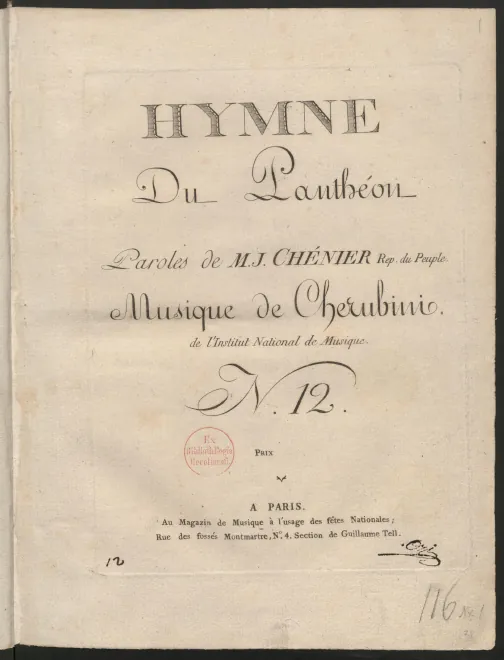 1
HYMNE
Du Panthéon
Paroles de M.J. CHÉNIER Rep. du Peuple.
Musique de Cherubini.
de l'Institut National de Musique.
N. 12.
Ex
Biblioth. Regia
PRIX
A PARIS.
Au Magazin de Musique à l'usage des fêtes Nationales;
Rue des fossés Montmartre, N.º 4. Section de Guillaume Tell.
12
116